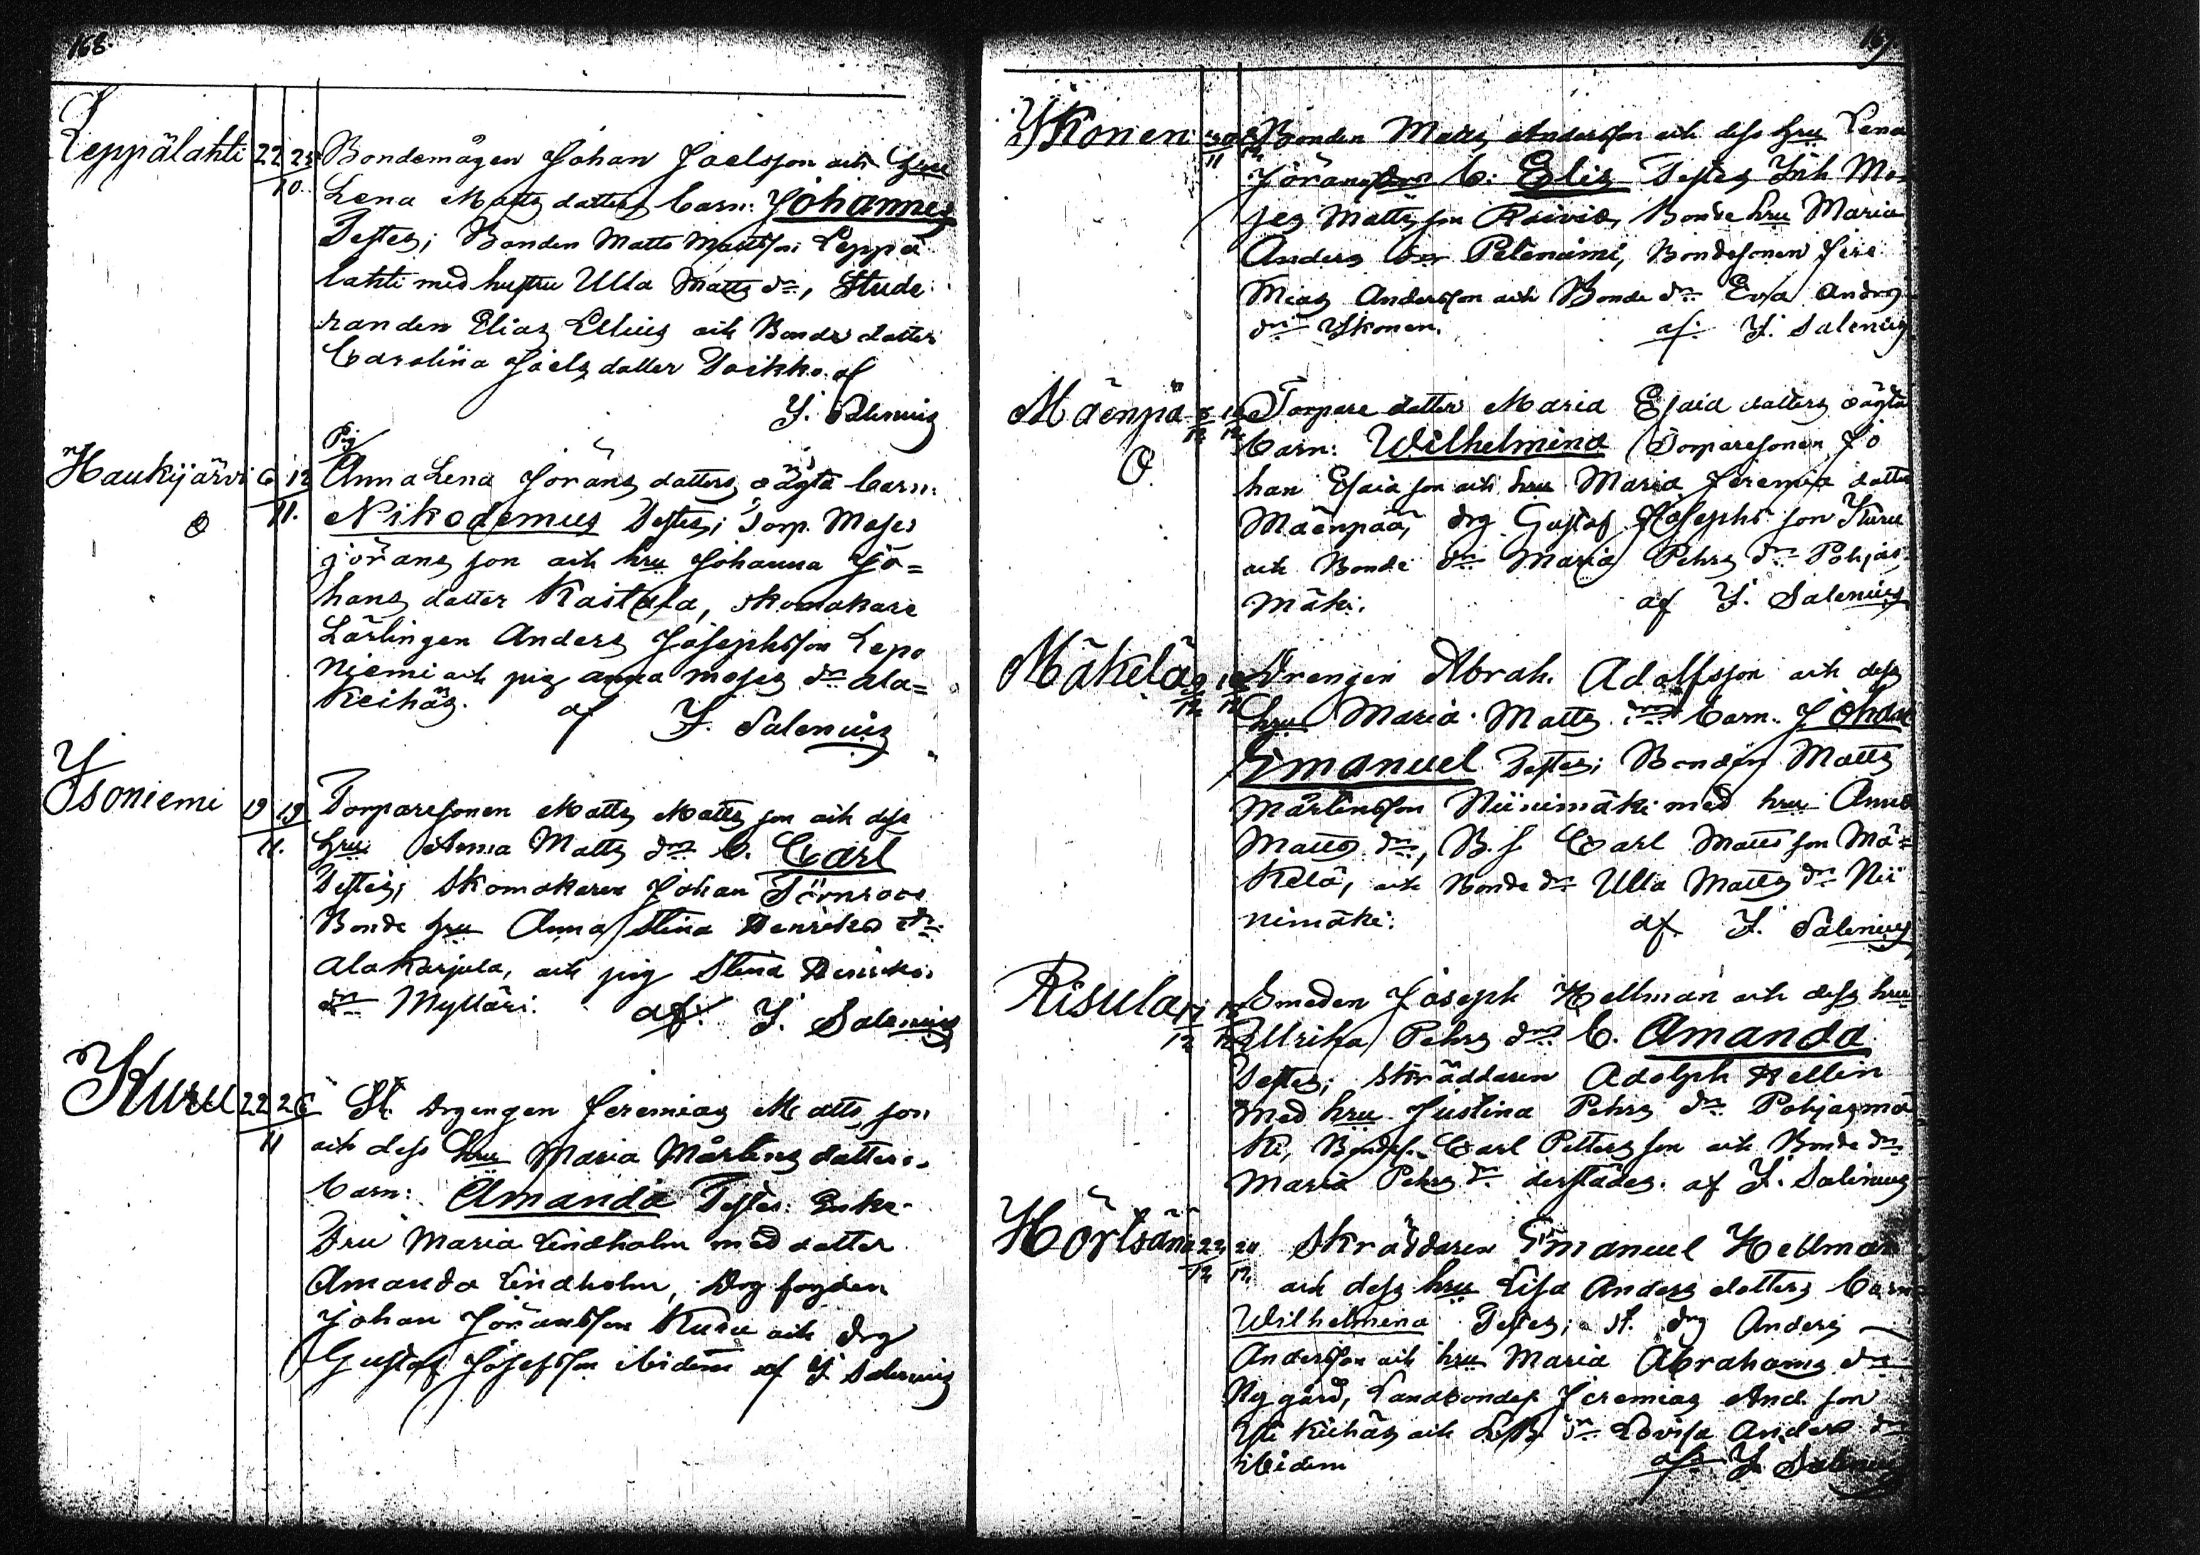 168.
Leppälahti 22 23/10. Bondemågen Johan Joelsson och hru
Lena Matts datters barn: Johannes
Testes; Bonden Matts Mattsson Leppä
lahti med hustru Ulla Matts dr, Stude
randen Elias Lilius och Bonde datter
Carolina Joels datter Poikko. af
Y. Salenius
Haukijärvi 6 12/11. Pig
Anna Lena Jörans datters oägta barn:
Nikodemus Testes; Torp. Moses
jörans son och hru Johanna Jo=
hans datter Kaitala, skomakare
Lärlingen Anders Josephsson Lepo
niemi och pig anna moses dr ala=
Keihäs. af Y. Salenius
Isoniemi 19 19/11. Torparesonen Matts Matts son och dess
hru Anna Matts drs b. Carl
Testes; Skomakaren Johan Törnroos
Bonde hru Anna Stina Henriks dr
alaKarjula, och pig Stina Henriks
dr Mylläri. af. Y. Salenius
Kuru 22 26/11 St. drgengen Jeremias Matts son
och dess hru Maria Mårtens datters
barn: Amanda Testes: Enke-
Fru Maria Lindholm med datter
Amanda Lindholm, Drg fogden
Johan Jöransson Kuru och drg
Gustaf Josefsson ibidem af Y Salenius
169.
Ykonen 30/11 Bonden Matts Andersson och dess hru Lena
Jörans drs b: Elis Testes Inh Mo
ses Matts son Koivio, Bonde hru Maria
Anders dr Peleniemi, Bondesonen Jere
mias Andersson och Bonde dr Eva Anders
dr Ykonen. af. Y. Salenius
Mäenpä 12 12 Torpare datter Maria Esaia datters oägta
barn: Wilhelmina Torparesonen Jo
han Esaia son och hru Maria Jeremia datter
Mäenpää, drg Gustaf Josephs son Kuru
och Bonde dr Maria Pehrs dr Pohjas
mäki. af Y. Salenius
Mäkelä 12 12 Drengen Abrah. Adolfsson och dess
hru Maria Matts drs barn. Johan
Emanuel Testes; Bonden Matts
Mårtensson Niinimäki med hru Anna
Matts dr, B.s Carl Matts son Mä=
kelä, och Bonde dr Ulla Matts dr Nii
nimäki. af. Y. Salenius
Risula 12 12 Smeden Joseph Hellman och dess hru
Ulrika Pehrs drs b. Amanda
Testes; Skräddaren Adolph Hellin
med hru Justina Pehrs dr Pohjasmä
ki, Bondes. Carl Petters son och Bonde dr
Maria Pehrs dr derstädes. af Y. Salenius
Hörtsänä 22/12 24/12 Skräddaren Emanuel Hellman
och dess hru Lisa Anders datters barn
Wilhelmina Testes; st. drg Anders
Andersson och hru Maria Abrahams dr
Nygård, Landbondes. Jeremias And. son
Yli Keihäs och L.B. dr Lovisa Anders dr
ibidem af. Y. Salenius